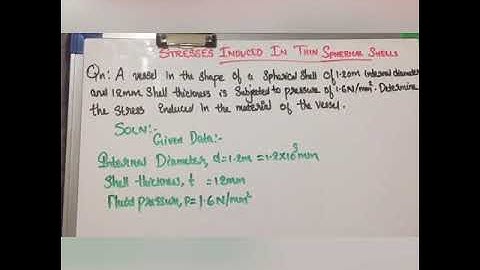 STRESSES INDUCED IN THIN SPHERICAL SHELLS
Qn: A vessel in the shape of a spherical shell of 1.20m internal diameter
and 12mm shell thickness is subjected to pressure of 1.6N/mm². Determine
the stress induced in the material of the vessel.
SOLN:-
Given Data:-
Internal Diameter, d=1.2m =1.2x10³mm
Shell thickness, t =12mm
Fluid pressure, P=1.6N/mm²